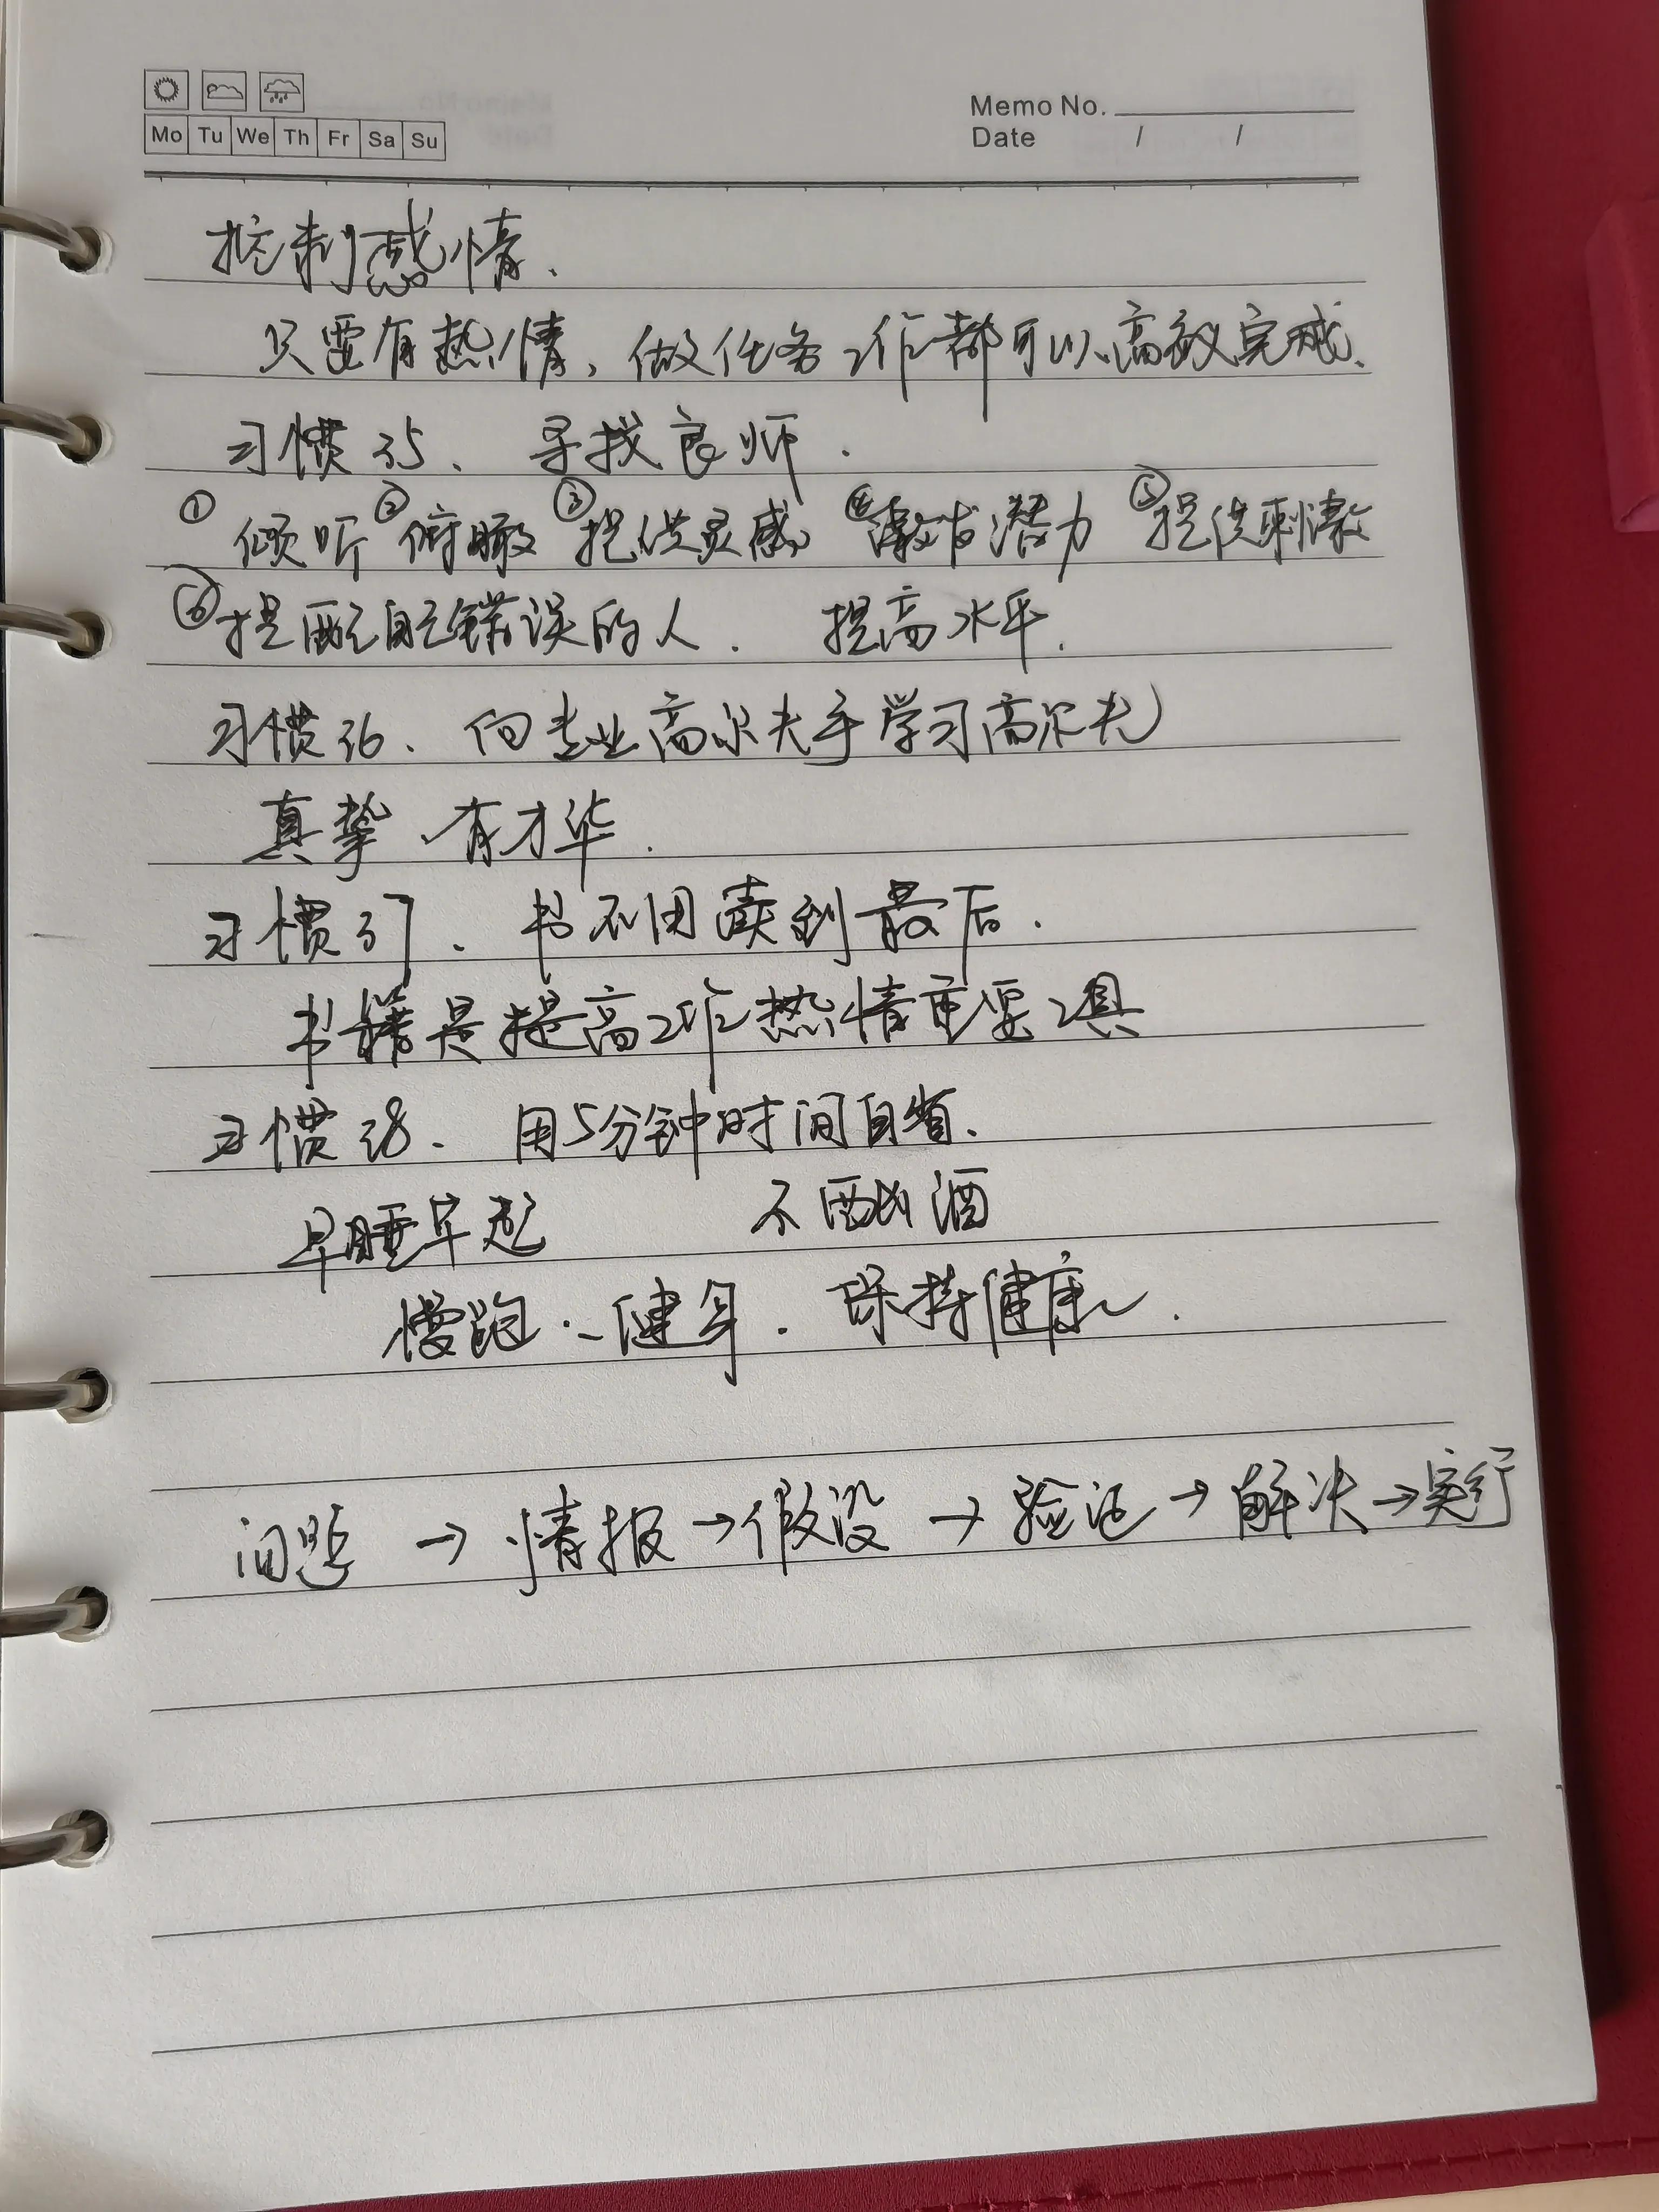 Mo Tu We Th Fr Sa Su
Memo No.
Date / /
控制感情、
只要有热情，做任务工作都可以高效完成、
习惯35、寻找良师．
①倾听 ②俯瞰 ③提供灵感 ④激发潜力 ⑤提供刺激
⑥提醒自己错误的人． 提高水平．
习惯36、向专业高尔夫手学习高尔夫
真挚、有才华．
习惯37、书不用读到最后．
书籍是提高工作热情重要工具
习惯38、用5分钟时间自省、
早睡早起 不酗酒
慢跑、健身．保持健康．
问题→情报→假设→验证→解决→实行